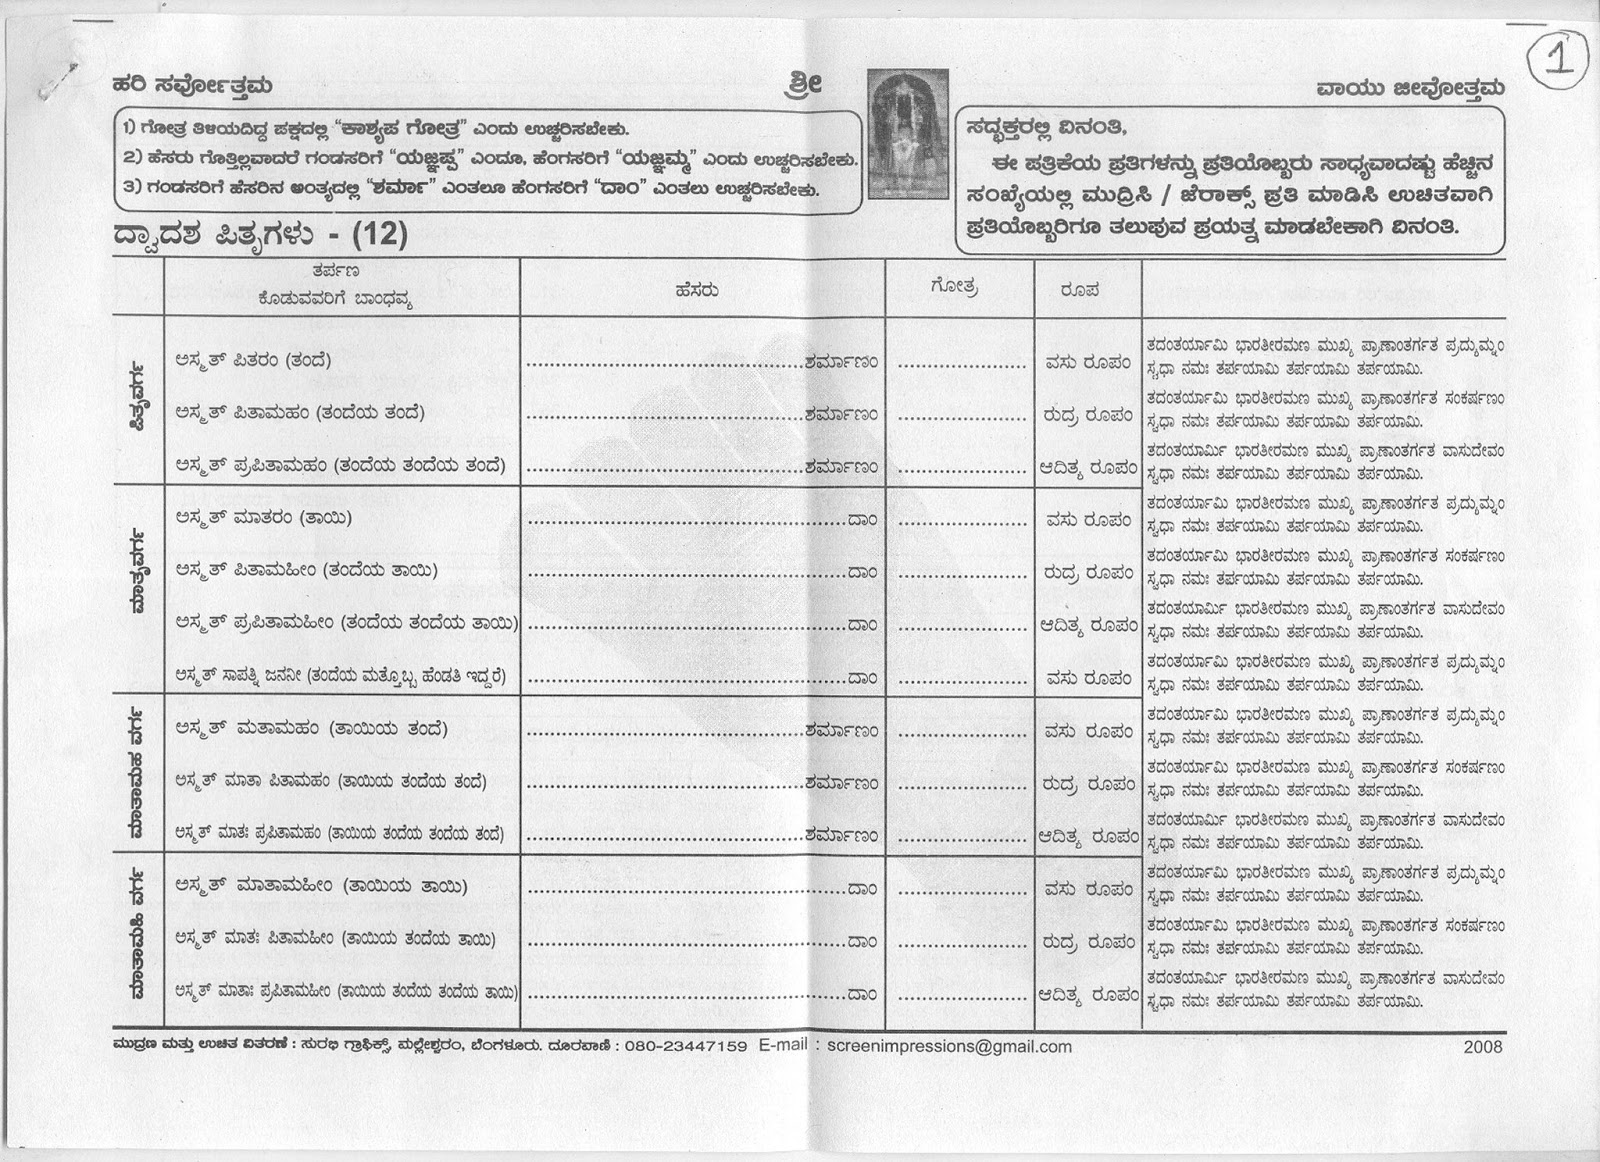 1
ಹರಿ ಸರ್ವೋತ್ತಮ
ಶ್ರೀ
ವಾಯು ಜೀವೋತ್ತಮ
1) ಗೋತ್ರ ತಿಳಿಯದಿದ್ದ ಪಕ್ಷದಲ್ಲಿ “ಕಾಶ್ಯಪ ಗೋತ್ರ” ಎಂದು ಉಚ್ಚರಿಸಬೇಕು.
2) ಹೆಸರು ಗೊತ್ತಿಲ್ಲವಾದರೆ ಗಂಡಸರಿಗೆ “ಯಜ್ಞಪ್ಪ” ಎಂದೂ, ಹೆಂಗಸರಿಗೆ “ಯಜ್ಞಮ್ಮ” ಎಂದು ಉಚ್ಚರಿಸಬೇಕು.
3) ಗಂಡಸರಿಗೆ ಹೆಸರಿನ ಅಂತ್ಯದಲ್ಲಿ “ಶರ್ಮಾ” ಎಂತಲೂ ಹೆಂಗಸರಿಗೆ “ದಾಂ” ಎಂತಲು ಉಚ್ಚರಿಸಬೇಕು.
ಸದ್ಭಕ್ತರಲ್ಲಿ ವಿನಂತಿ,
ಈ ಪತ್ರಿಕೆಯ ಪ್ರತಿಗಳನ್ನು ಪ್ರತಿಯೊಬ್ಬರು ಸಾಧ್ಯವಾದಷ್ಟು ಹೆಚ್ಚಿನ
ಸಂಖ್ಯೆಯಲ್ಲಿ ಮುದ್ರಿಸಿ / ಜೆರಾಕ್ಸ್ ಪ್ರತಿ ಮಾಡಿಸಿ ಉಚಿತವಾಗಿ
ಪ್ರತಿಯೊಬ್ಬರಿಗೂ ತಲುಪುವ ಪ್ರಯತ್ನ ಮಾಡಬೇಕಾಗಿ ವಿನಂತಿ.
ದ್ವಾದಶ ಪಿತೃಗಳು - (12)
ತರ್ಪಣ
ಕೊಡುವವರಿಗೆ ಬಾಂಧವ್ಯ
ಹೆಸರು
ಗೋತ್ರ
ರೂಪ
ಪಿತೃವರ್ಗ
ಅಸ್ಮತ್ ಪಿತರಂ (ತಂದೆ) ........ಶರ್ಮಾಣಂ ........ ವಸು ರೂಪಂ
ತದಂತರ್ಯಾಮಿ ಭಾರತೀರಮಣ ಮುಖ್ಯ ಪ್ರಾಣಾಂತರ್ಗತ ಪ್ರದ್ಯುಮ್ನಂ
ಸ್ವಧಾ ನಮಃ ತರ್ಪಯಾಮಿ ತರ್ಪಯಾಮಿ ತರ್ಪಯಾಮಿ.
ಅಸ್ಮತ್ ಪಿತಾಮಹಂ (ತಂದೆಯ ತಂದೆ) ........ಶರ್ಮಾಣಂ ........ ರುದ್ರ ರೂಪಂ
ತದಂತರ್ಯಾಮಿ ಭಾರತೀರಮಣ ಮುಖ್ಯ ಪ್ರಾಣಾಂತರ್ಗತ ಸಂಕರ್ಷಣಂ
ಸ್ವಧಾ ನಮಃ ತರ್ಪಯಾಮಿ ತರ್ಪಯಾಮಿ ತರ್ಪಯಾಮಿ.
ಅಸ್ಮತ್ ಪ್ರಪಿತಾಮಹಂ (ತಂದೆಯ ತಂದೆಯ ತಂದೆ) ........ಶರ್ಮಾಣಂ ........ ಆದಿತ್ಯ ರೂಪಂ
ತದಂತಯಾರ್ಮಿ ಭಾರತೀರಮಣ ಮುಖ್ಯ ಪ್ರಾಣಾಂತರ್ಗತ ವಾಸುದೇವಂ
ಸ್ವಧಾ ನಮಃ ತರ್ಪಯಾಮಿ ತರ್ಪಯಾಮಿ ತರ್ಪಯಾಮಿ.
ಮಾತೃವರ್ಗ
ಅಸ್ಮತ್ ಮಾತರಂ (ತಾಯಿ) ........ದಾಂ ........ ವಸು ರೂಪಂ
ತದಂತರ್ಯಾಮಿ ಭಾರತೀರಮಣ ಮುಖ್ಯ ಪ್ರಾಣಾಂತರ್ಗತ ಪ್ರದ್ಯುಮ್ನಂ
ಸ್ವಧಾ ನಮಃ ತರ್ಪಯಾಮಿ ತರ್ಪಯಾಮಿ ತರ್ಪಯಾಮಿ.
ಅಸ್ಮತ್ ಪಿತಾಮಹೀಂ (ತಂದೆಯ ತಾಯಿ) ........ದಾಂ ........ ರುದ್ರ ರೂಪಂ
ತದಂತರ್ಯಾಮಿ ಭಾರತೀರಮಣ ಮುಖ್ಯ ಪ್ರಾಣಾಂತರ್ಗತ ಸಂಕರ್ಷಣಂ
ಸ್ವಧಾ ನಮಃ ತರ್ಪಯಾಮಿ ತರ್ಪಯಾಮಿ ತರ್ಪಯಾಮಿ.
ಅಸ್ಮತ್ ಪ್ರಪಿತಾಮಹೀಂ (ತಂದೆಯ ತಂದೆಯ ತಾಯಿ) ........ದಾಂ ........ ಆದಿತ್ಯ ರೂಪಂ
ತದಂತಯಾರ್ಮಿ ಭಾರತೀರಮಣ ಮುಖ್ಯ ಪ್ರಾಣಾಂತರ್ಗತ ವಾಸುದೇವಂ
ಸ್ವಧಾ ನಮಃ ತರ್ಪಯಾಮಿ ತರ್ಪಯಾಮಿ ತರ್ಪಯಾಮಿ.
ಅಸ್ಮತ್ ಸಾಪತ್ನಿ ಜನನೀ (ತಂದೆಯ ಮತ್ತೊಬ್ಬ ಹೆಂಡತಿ ಇದ್ದರೆ) ........ದಾಂ ........ ವಸು ರೂಪಂ
ತದಂತರ್ಯಾಮಿ ಭಾರತೀರಮಣ ಮುಖ್ಯ ಪ್ರಾಣಾಂತರ್ಗತ ಪ್ರದ್ಯುಮ್ನಂ
ಸ್ವಧಾ ನಮಃ ತರ್ಪಯಾಮಿ ತರ್ಪಯಾಮಿ ತರ್ಪಯಾಮಿ.
ಮಾತಾಮಹ ವರ್ಗ
ಅಸ್ಮತ್ ಮತಾಮಹಂ (ತಾಯಿಯ ತಂದೆ) ........ಶರ್ಮಾಣಂ ........ ವಸು ರೂಪಂ
ತದಂತರ್ಯಾಮಿ ಭಾರತೀರಮಣ ಮುಖ್ಯ ಪ್ರಾಣಾಂತರ್ಗತ ಪ್ರದ್ಯುಮ್ನಂ
ಸ್ವಧಾ ನಮಃ ತರ್ಪಯಾಮಿ ತರ್ಪಯಾಮಿ ತರ್ಪಯಾಮಿ.
ಅಸ್ಮತ್ ಮಾತಾ ಪಿತಾಮಹಂ (ತಾಯಿಯ ತಂದೆಯ ತಂದೆ) ........ಶರ್ಮಾಣಂ ........ ರುದ್ರ ರೂಪಂ
ತದಂತರ್ಯಾಮಿ ಭಾರತೀರಮಣ ಮುಖ್ಯ ಪ್ರಾಣಾಂತರ್ಗತ ಸಂಕರ್ಷಣಂ
ಸ್ವಧಾ ನಮಃ ತರ್ಪಯಾಮಿ ತರ್ಪಯಾಮಿ ತರ್ಪಯಾಮಿ.
ಅಸ್ಮತ್ ಮಾತಃ ಪ್ರಪಿತಾಮಹಂ (ತಾಯಿಯ ತಂದೆಯ ತಂದೆಯ ತಂದೆ) ........ಶರ್ಮಾಣಂ ........ ಆದಿತ್ಯ ರೂಪಂ
ತದಂತಯಾರ್ಮಿ ಭಾರತೀರಮಣ ಮುಖ್ಯ ಪ್ರಾಣಾಂತರ್ಗತ ವಾಸುದೇವಂ
ಸ್ವಧಾ ನಮಃ ತರ್ಪಯಾಮಿ ತರ್ಪಯಾಮಿ ತರ್ಪಯಾಮಿ.
ಮಾತಾಮಹಿ ವರ್ಗ
ಅಸ್ಮತ್ ಮಾತಾಮಹೀಂ (ತಾಯಿಯ ತಾಯಿ) ........ದಾಂ ........ ವಸು ರೂಪಂ
ತದಂತರ್ಯಾಮಿ ಭಾರತೀರಮಣ ಮುಖ್ಯ ಪ್ರಾಣಾಂತರ್ಗತ ಪ್ರದ್ಯುಮ್ನಂ
ಸ್ವಧಾ ನಮಃ ತರ್ಪಯಾಮಿ ತರ್ಪಯಾಮಿ ತರ್ಪಯಾಮಿ.
ಅಸ್ಮತ್ ಮಾತಃ ಪಿತಾಮಹೀಂ (ತಾಯಿಯ ತಂದೆಯ ತಾಯಿ) ........ದಾಂ ........ ರುದ್ರ ರೂಪಂ
ತದಂತರ್ಯಾಮಿ ಭಾರತೀರಮಣ ಮುಖ್ಯ ಪ್ರಾಣಾಂತರ್ಗತ ಸಂಕರ್ಷಣಂ
ಸ್ವಧಾ ನಮಃ ತರ್ಪಯಾಮಿ ತರ್ಪಯಾಮಿ ತರ್ಪಯಾಮಿ.
ಅಸ್ಮತ್ ಮಾತಾಃ ಪ್ರಪಿತಾಮಹೀಂ (ತಾಯಿಯ ತಂದೆಯ ತಂದೆಯ ತಾಯಿ) ........ದಾಂ ........ ಆದಿತ್ಯ ರೂಪಂ
ತದಂತಯಾರ್ಮಿ ಭಾರತೀರಮಣ ಮುಖ್ಯ ಪ್ರಾಣಾಂತರ್ಗತ ವಾಸುದೇವಂ
ಸ್ವಧಾ ನಮಃ ತರ್ಪಯಾಮಿ ತರ್ಪಯಾಮಿ ತರ್ಪಯಾಮಿ.
ಮುದ್ರಣ ಮತ್ತು ಉಚಿತ ವಿತರಣೆ : ಸುರಭಿ ಗ್ರಾಫಿಕ್ಸ್, ಮಲ್ಲೇಶ್ವರಂ, ಬೆಂಗಳೂರು. ದೂರವಾಣಿ : 080-23447159 E-mail : screenimpressions@gmail.com 2008